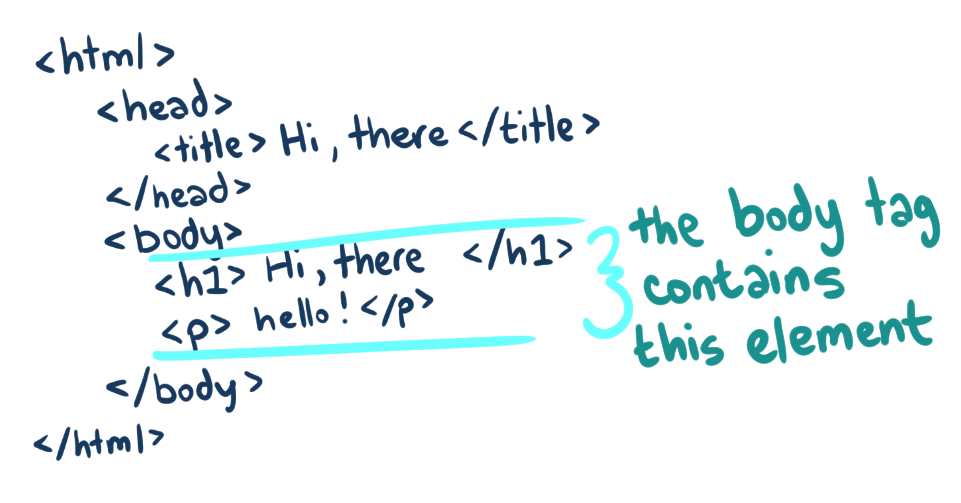 <html>
<head>
<title> Hi, there </title>
</head>
<body>
<h1> Hi, there </h1>
<p> hello! </p>
</body>
</html>
the body tag
contains
this element